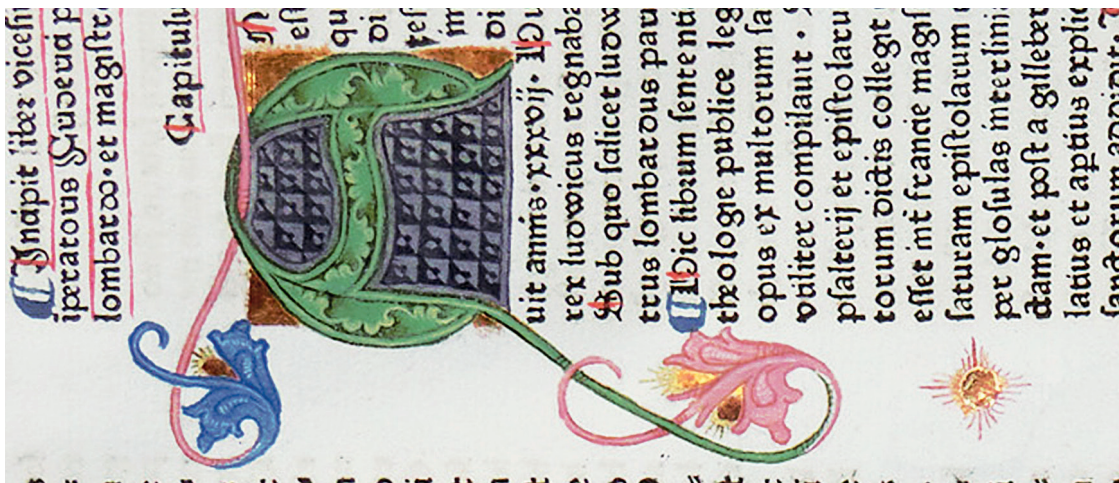 Incipit liber vicesi
lombardo.et magistro
Capitulu
qu
uit annis.xxxvij.
rex ludowicus regnaba
Sub quo scilicet ludow
trus lombardus
Hic librum sententi
theologie publice leg
opus ex multorum sa
vtiliter compilauit .
psalterij et epistolaru
torum dictis collegit
esset int francie magis
saturam epistolarum
per glosulas interlinia
dam.et post a gilleber
latius et aptius explic